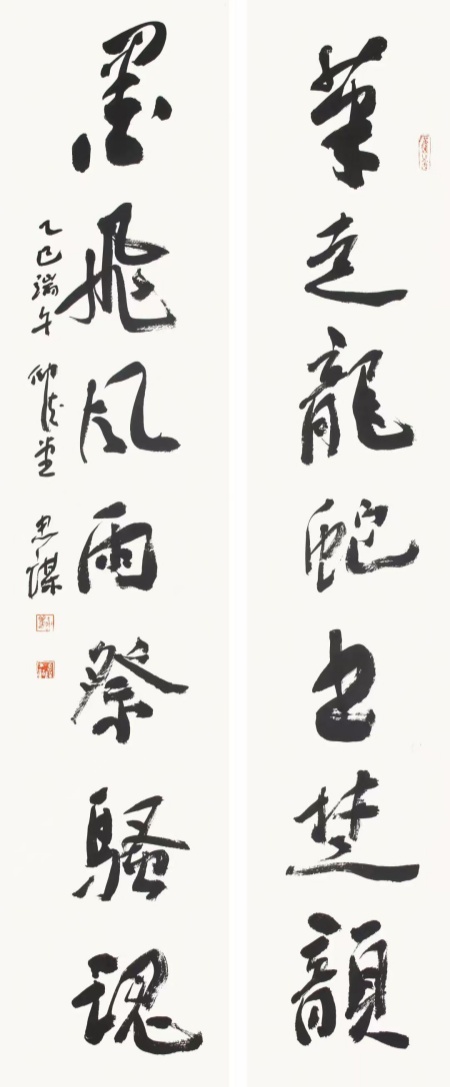 筆走龍蛇書楚韻
墨飛风雨祭騷魂
乙巳端午 忠謀